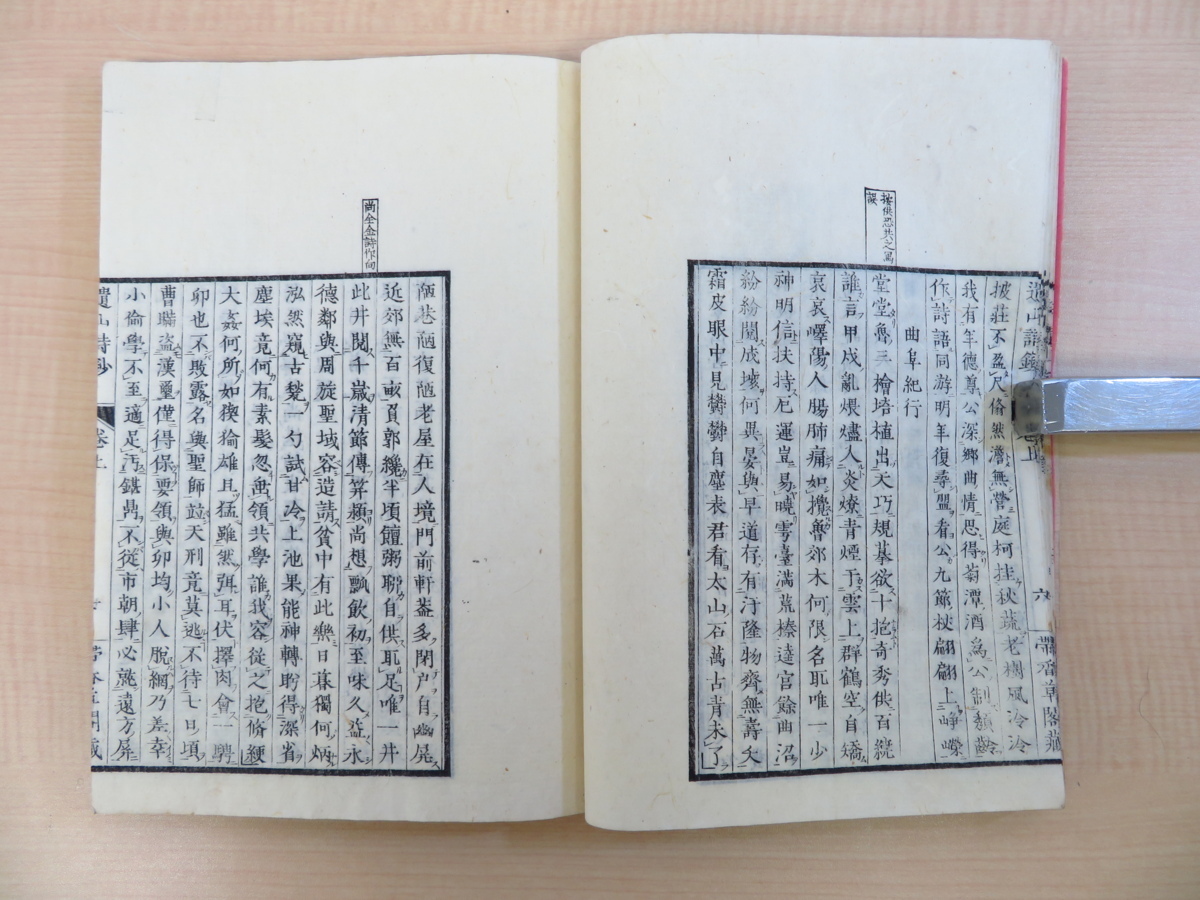 按供恐共之寫
誤
披莊不盈尺脩然澹無營庭柯挂秋蔬老樹風泠泠
我有年德尊公深鄉曲情思得菊潭酒為公制頹齡
作詩語同游明年復尋盟看公九節杖翩翩上崢嶸
曲阜紀行
堂堂魯三檜培植出天巧規摹欲十抱奇秀供百繞
誰言甲戌亂煨燼入炎燎青煙干雲上群鶴空自矯
哀哀嶧陽人腸肺痛如攪魯郊木何限名取唯一少
神明信扶持厄運豈易曉雩臺滿荒榛達官餘曲沼
紛紛閱成壞何異晏與早道存有汙隆物齊無壽夭
霜皮眼中見鬱鬱自塵表君看太山石萬古青未了
尚全金詩作向
陋巷陋復陋老屋在人境門前軒蓋多閉戶自幽屏
近郊無百畝負郭纔半頃饘粥聊自供取足唯一井
此井閱千歲清節傳箕潁尚想瓢飲初至味久益永
德鄰與周旋聖域容造請貧中有此樂日暮獨何炳
泓然窺古甃一勺試甘冷上池果能神轉盻得深省
塵埃竟何有素髮忽垂領共學誰我容從之抱脩綆
大姦何所如猰㺄雄且猛雖然弭耳伏擇肉會一騁
卯也不敗露名與聖師竝天刑竟莫逃不待七日頃
曹瞞盜漢璽僅得保要領與卯均小人脫網乃差幸
小倫學不至適足汚鍖鼎不從市朝肆必就遠方屏
遺山詩鈔
卷上